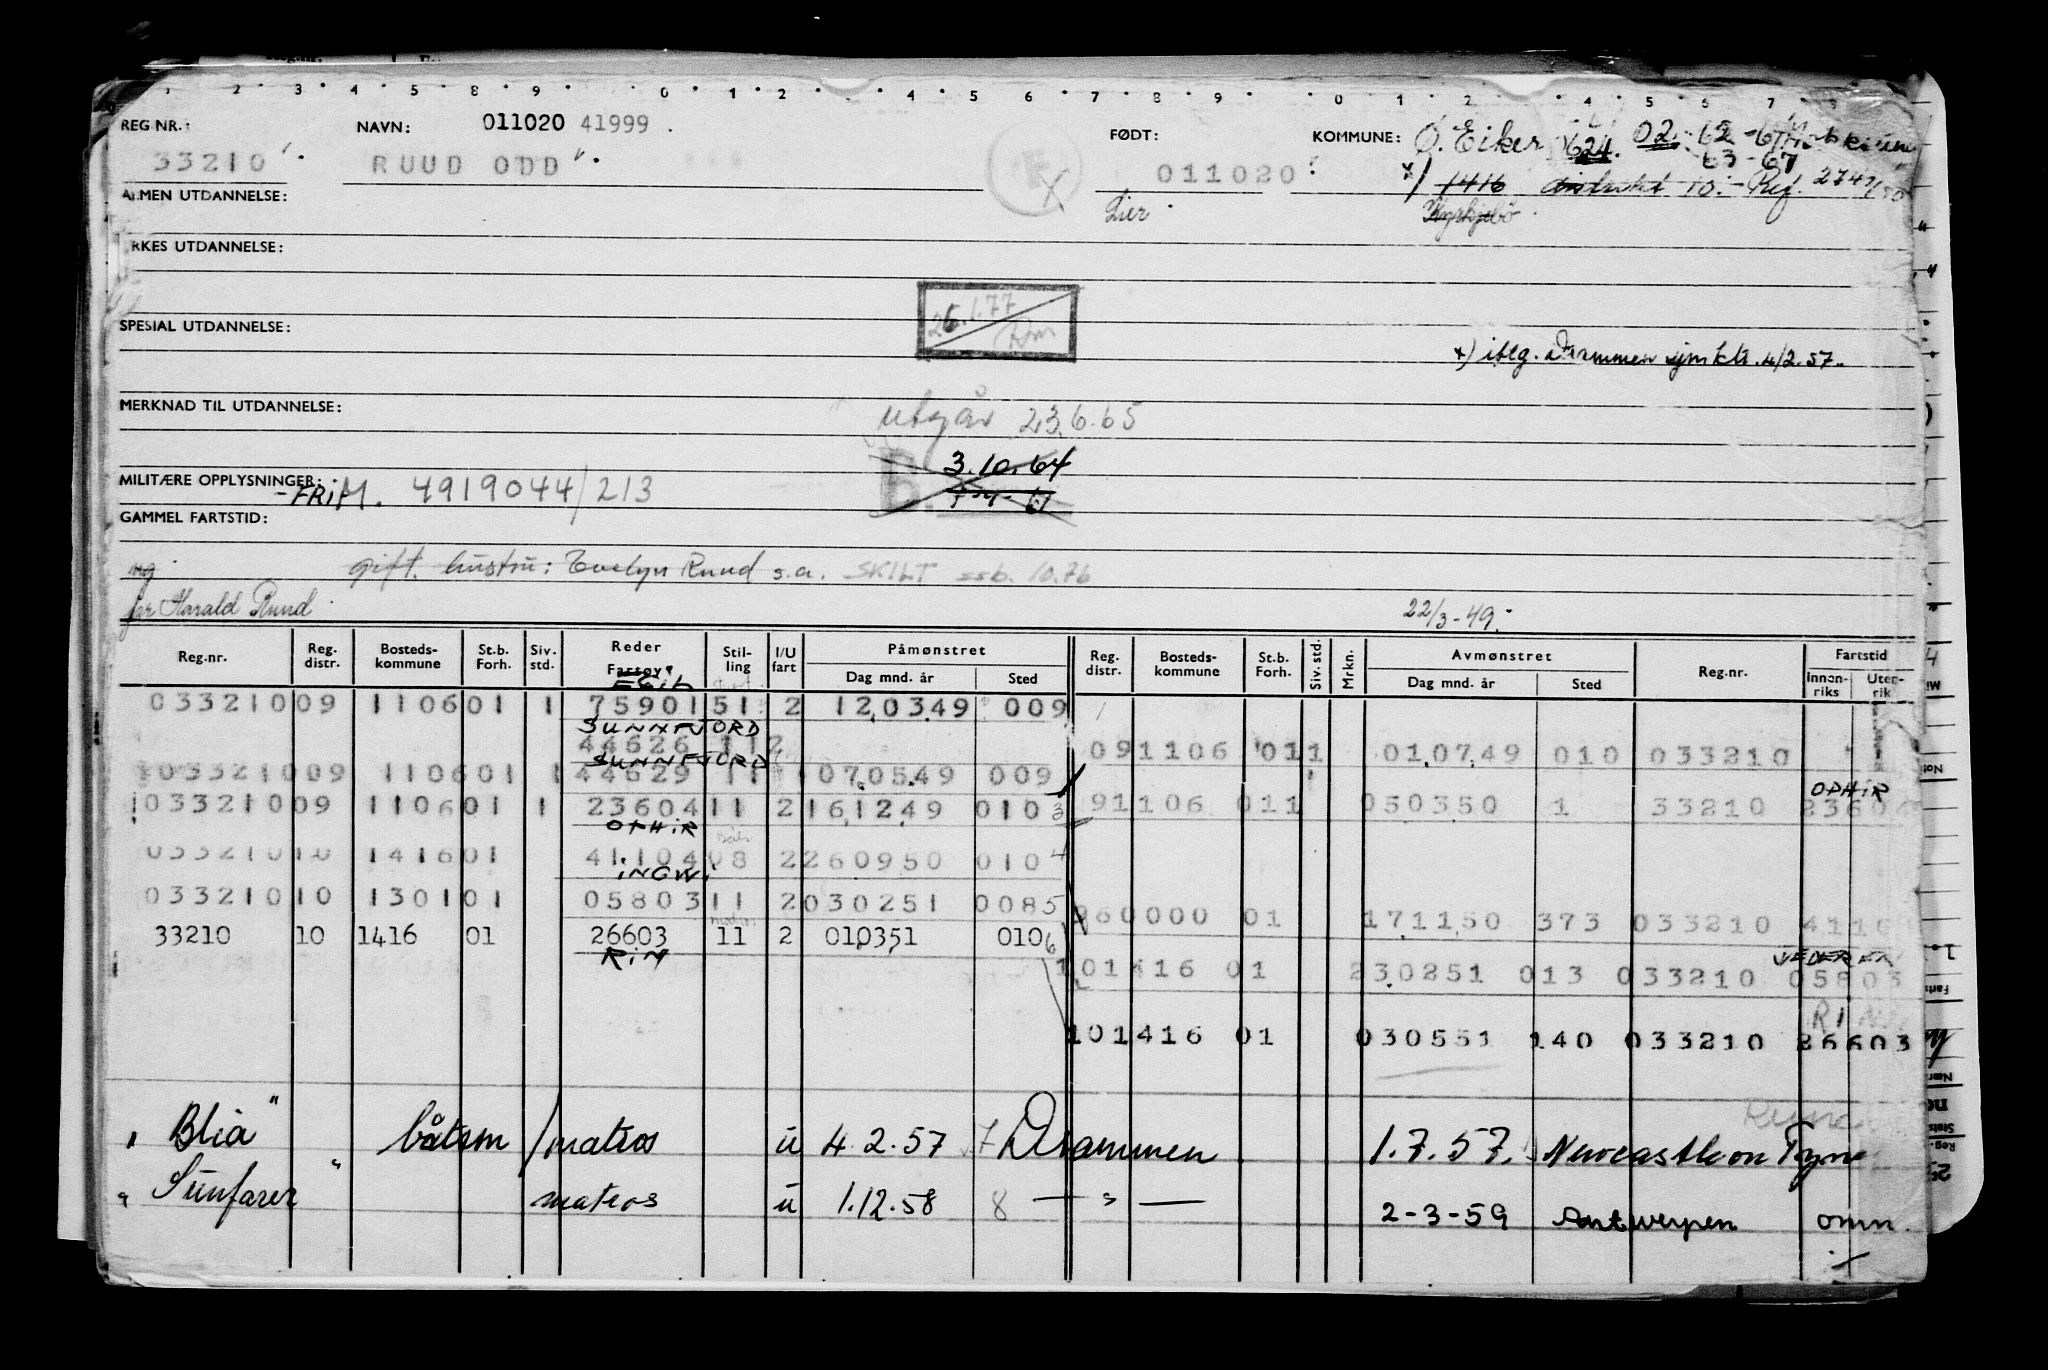 1 2 3 4 5 8 9 0 1 2 4 5 6 7 8 9 0 1 2 4 5 6 7 8
REG NR.: NAVN: 011020 41999 FØDT: KOMMUNE: Ø. Eiker 0624. 02.
33210 RUUD ODD 011020 1416 distrikt 10. Ref.
ALMEN UTDANNELSE: Lier Kyrkjebø
RKES UTDANNELSE:
26.1.77
SPESIAL UTDANNELSE:
x) iflg. Drammen sjmktr. 4/2.57.
MERKNAD TIL UTDANNELSE: utgår 23.6.65
B. 3.10.64
MILITÆRE OPPLYSNINGER: -FRiM. 4919044/213
GAMMEL FARTSTID:
gift. hustru: Evelyn Ruud s.a. SKILT ssb. 10.76
far Harald Ruud 22/3-49.
Reg.nr. Reg. distr. Bosteds- kommune St.b. Forh. Siv. std. Reder Fartøy Stil- ling I/U fart Påmønstret Dag mnd. år Sted Reg. distr. Bosteds- kommune St.b. Forh. Siv. std. Mrkn. Avmønstret Dag mnd. år Sted Reg.nr. Fartstid Innen- riks Uten- rik
033210 09 1106 01 1 75901 51 2 120349 009
SUNNFJORD
44626 11 2 09 1106 01 1 010749 010 033210
SUNNFJORD
033210 09 1106 01 1 44629 11 070549 009
OPHIR
033210 09 1106 01 1 23604 11 2 161249 010 3 9 1106 01 1 050350 1 33210 23604
OPHIR
033210 10 1416 01 41104 08 2 260950 010 4
INGW.
033210 10 1301 01 05803 11 2 030251 008 5 960000 01 171150 373 033210 4110
33210 10 1416 01 26603 11 2 010351 010 6
RIN
10 1416 01 230251 013 033210 05803
RIN
10 1416 01 030551 140 033210 26603
"Blia" båtsm/matros u 4.2.57 7 Drammen 1.7.57. Newcastle on Tyne
"Sunfarer" matros u 1.12.58 8 — " — 2-3-59 Antwerpen omm.